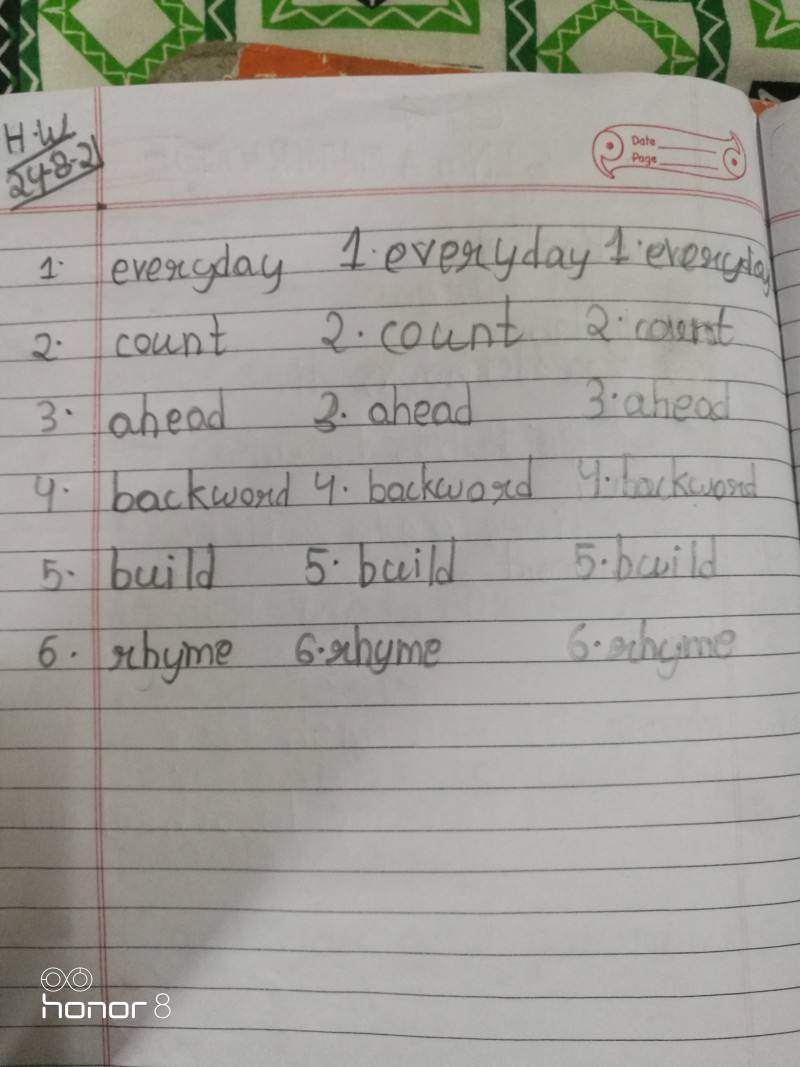 H.W
24-8-21
Date
Page
1. everyday 1. everyday 1. everyday
2. count 2. count 2. count
3. ahead 3. ahead 3. ahead
4. backword 4. backword 4. backword
5. build 5. build 5. build
6. rhyme 6. rhyme 6. rhyme
honor 8